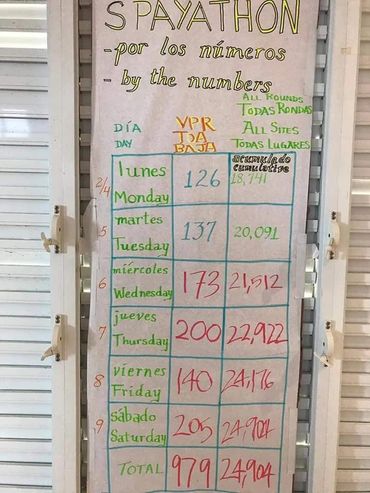 SPAYATHON
-por los números
- by the numbers
ALL ROUNDS
TODAS RONDAS
ALL SITES
TODAS LUGARES
DÍA
DAY
VPR
TOA
BAJA
acumulado
cumulative
2/4 lunes Monday 126 18,741
5 martes Tuesday 137 20,091
6 miércoles Wednesday 173 21,512
7 jueves Thursday 200 22,922
8 viernes Friday 140 24,176
9 sábado Saturday 205 24,904
TOTAL 979 24,904